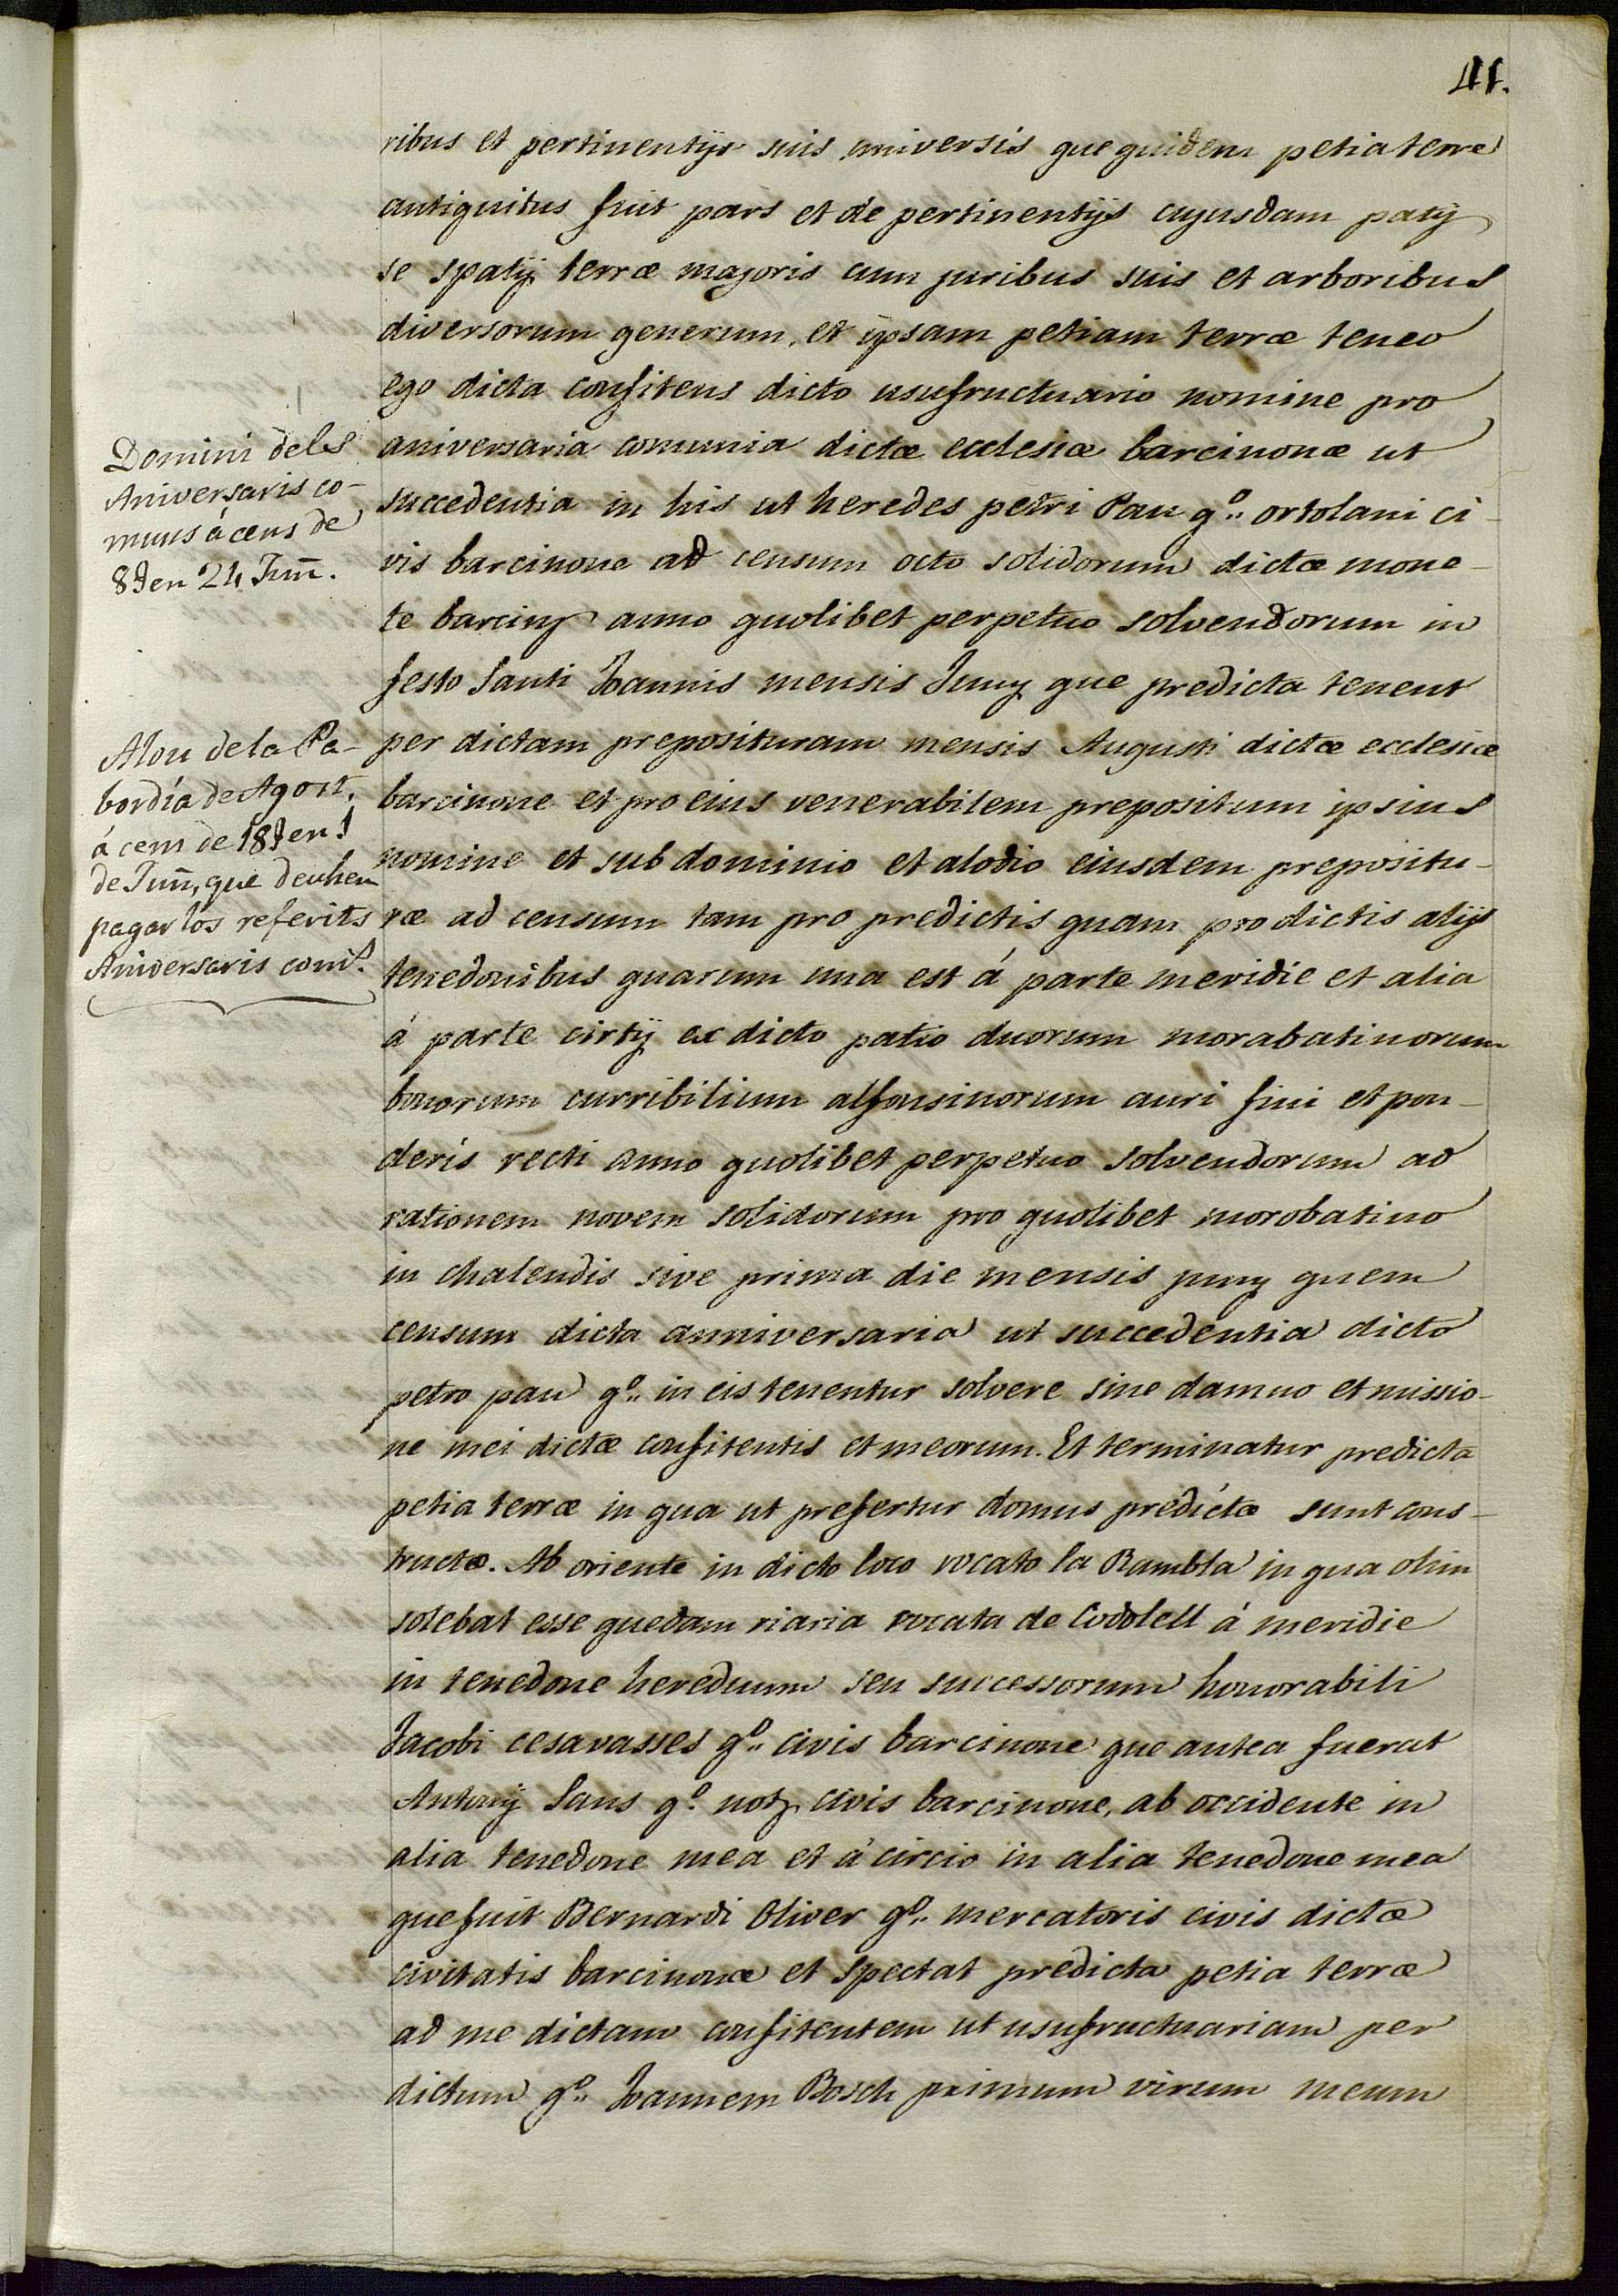 41.
ribus et pertinentijs suis universis que quidem petia terre
antiquitus fuit pars et de pertinentijs cujusdam patij
se spatij terræ majoris cum juribus suis et arboribus
diversorum generum, et ipsam petiam terræ teneo
ego dicta confitens dicto usufructuario nomine pro
aniversaria comunia dictæ ecclesiæ barcinonæ ut
succedentia in his ut heredes petri Pau qº. ortolani ci-
vis barcinone ad censum octo solidorum dictæ mone-
te barcinȝ anno quolibet perpetuo solvendorum in
festo Santi Joannis mensis Juny que predicta tenent
per dictam preposituram mensis Augusti dictæ ecclesiæ
barcinone et pro eius venerabilem prepositum ipsius
nomine et sub dominio et alodio eiusdem prepositu-
ræ ad censum tam pro predictis quam pro dictis alijs
tenedonibus quarum una est á parte meridie et alia
á parte cirtij ex dicto patio duorum morabatinorum
bonorum curribilium alfonsinorum auri fini et pon-
deris recti anno quolibet perpetuo solvendorum ad
rationem novem solidorum pro quolibet morobatino
in chalendis sive prima die mensis juny quem
censum dicta anniversaria ut succedentia dicto
petro pau qº. in eis tenentur solvere sine damno et missio-
ne mei dictæ confitentis et meorum. Et terminatur predicta
petia terræ in qua ut prefertur domus predictæ sunt cons-
tructæ. Ab oriente in dicto loco vocato la Rambla in qua olim
solebat esse quedam riaria vocata de Codolell á meridie
in tenedone heredum seu successorum honorabili
Jacobi cesavasses qº. civis barcinone que antea fuerat
Antonij Sans qº. notȝ civis barcinone, ab occidente in
alia tenedone mea et á circio in alia tenedone mea
que fuit Bernardi Oliver qº. mercatoris civis dictæ
civitatis barcinonæ et spectat predicta petia terræ
ad me dictam confitentem ut usufructuariam per
dictum qº. Joannem Bosch primum virum meum
Domini dels
Aniversaris co-
muns á cens de
8 en 24 Juñ.
Alou de la Pa-
bordía de Agost,
á cens de 18 en 1
de Juñ, que deuhen
pagar los referits
Aniversaris coms.